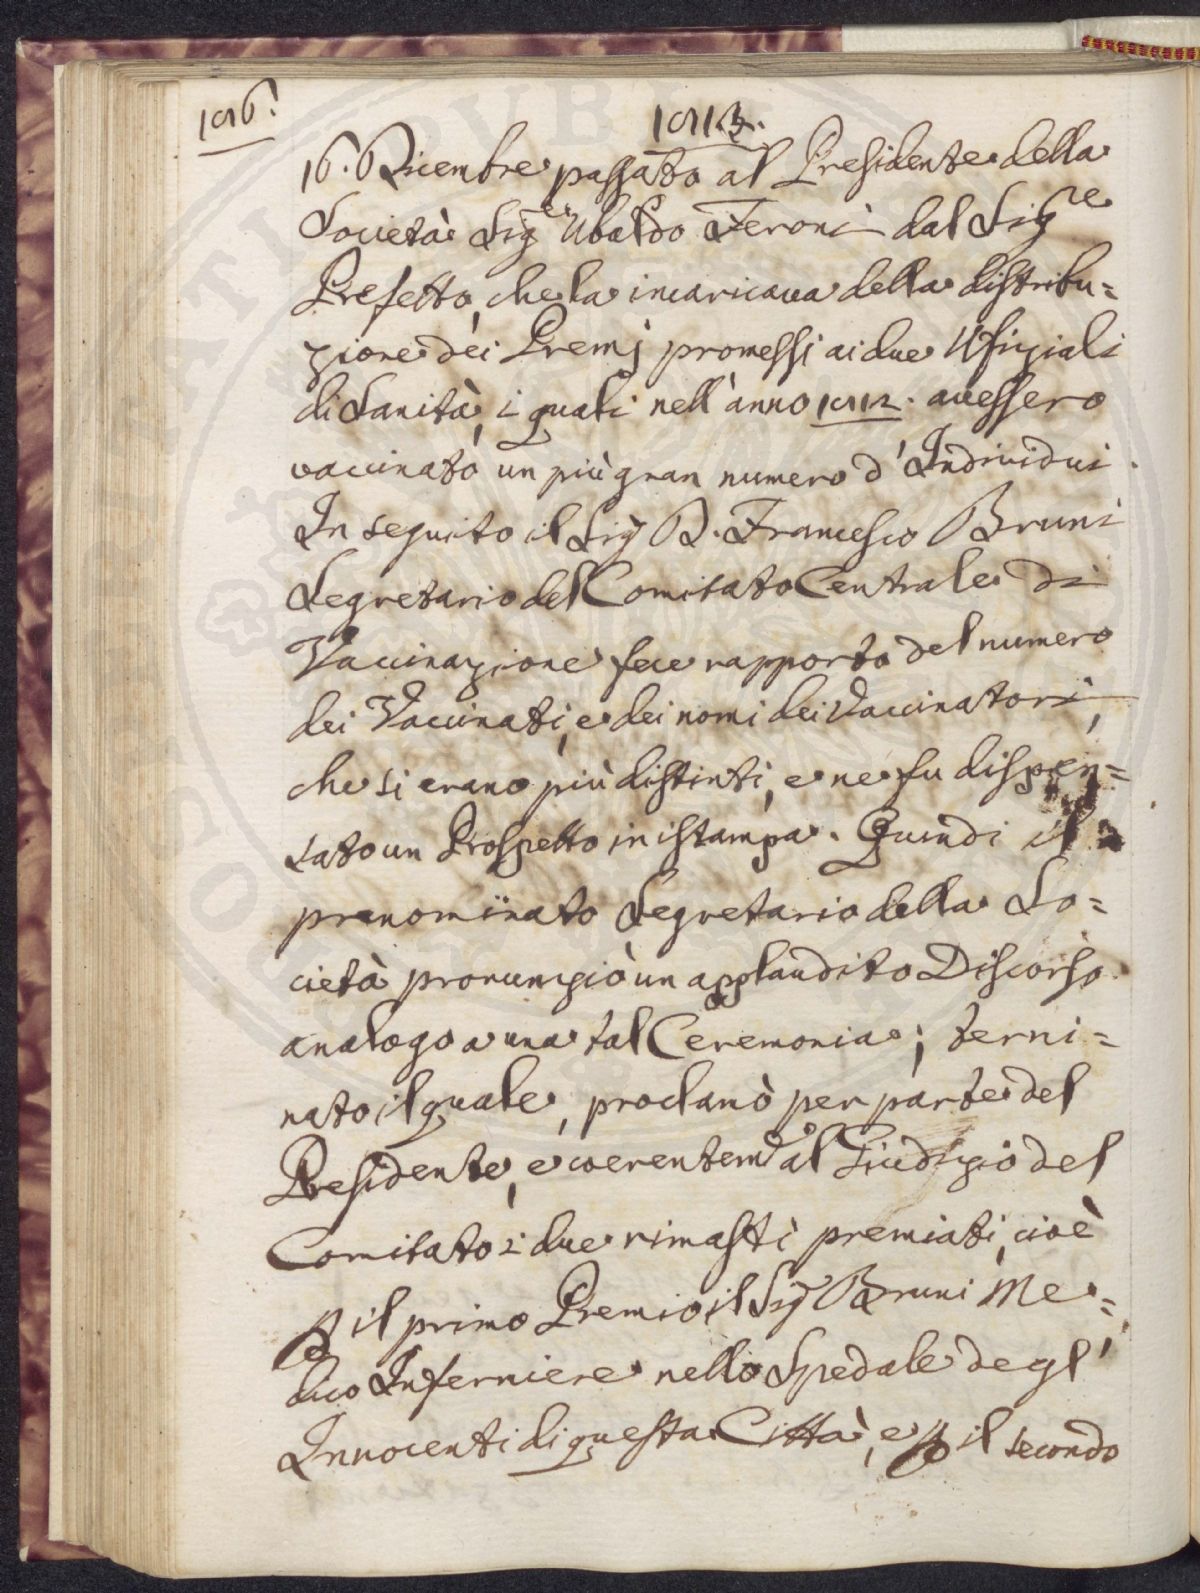 186.
1813.
16. Dicembre passato al Presidente della
Società Sig.re Ubaldo Feroni dal Sig.re
Prefetto, che la incaricava della distribu=
zione dei Premj promessi ai due Ufiziali
di Sanità, i quali nell'anno 1812. avessero
vaccinato un più gran numero d'Individui.
In seguito il Sig.r D. Francesco Bruni
Segretario del Comitato Centrale di
Vaccinazione fece rapporto del numero
dei Vaccinati, e dei nomi dei Vaccinatori,
che si erano più distinti, e ne fu dispen=
sato un Prospetto in istampa. Quindi il
prenominato Segretario della So=
cietà pronunziò un applaudito Discorso
analogo a una tal Ceremonia; termi=
nato il quale, proclamò per parte del
Presidente, e coerentem.e al Giudizio del
Comitato i due rimasti premiati, cioè
p il primo Premio il Sig.r Bruni Me=
dico Infermiere nello Spedale degl'
Innocenti di questa Città, e p il secondo